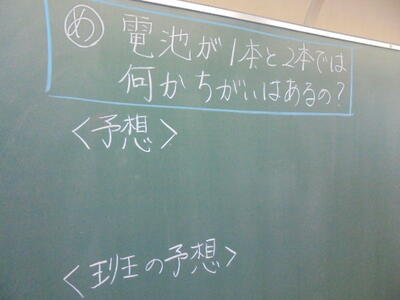 め 電池が1本と2本では
何かちがいはあるの？
＜予想＞
＜班の予想＞